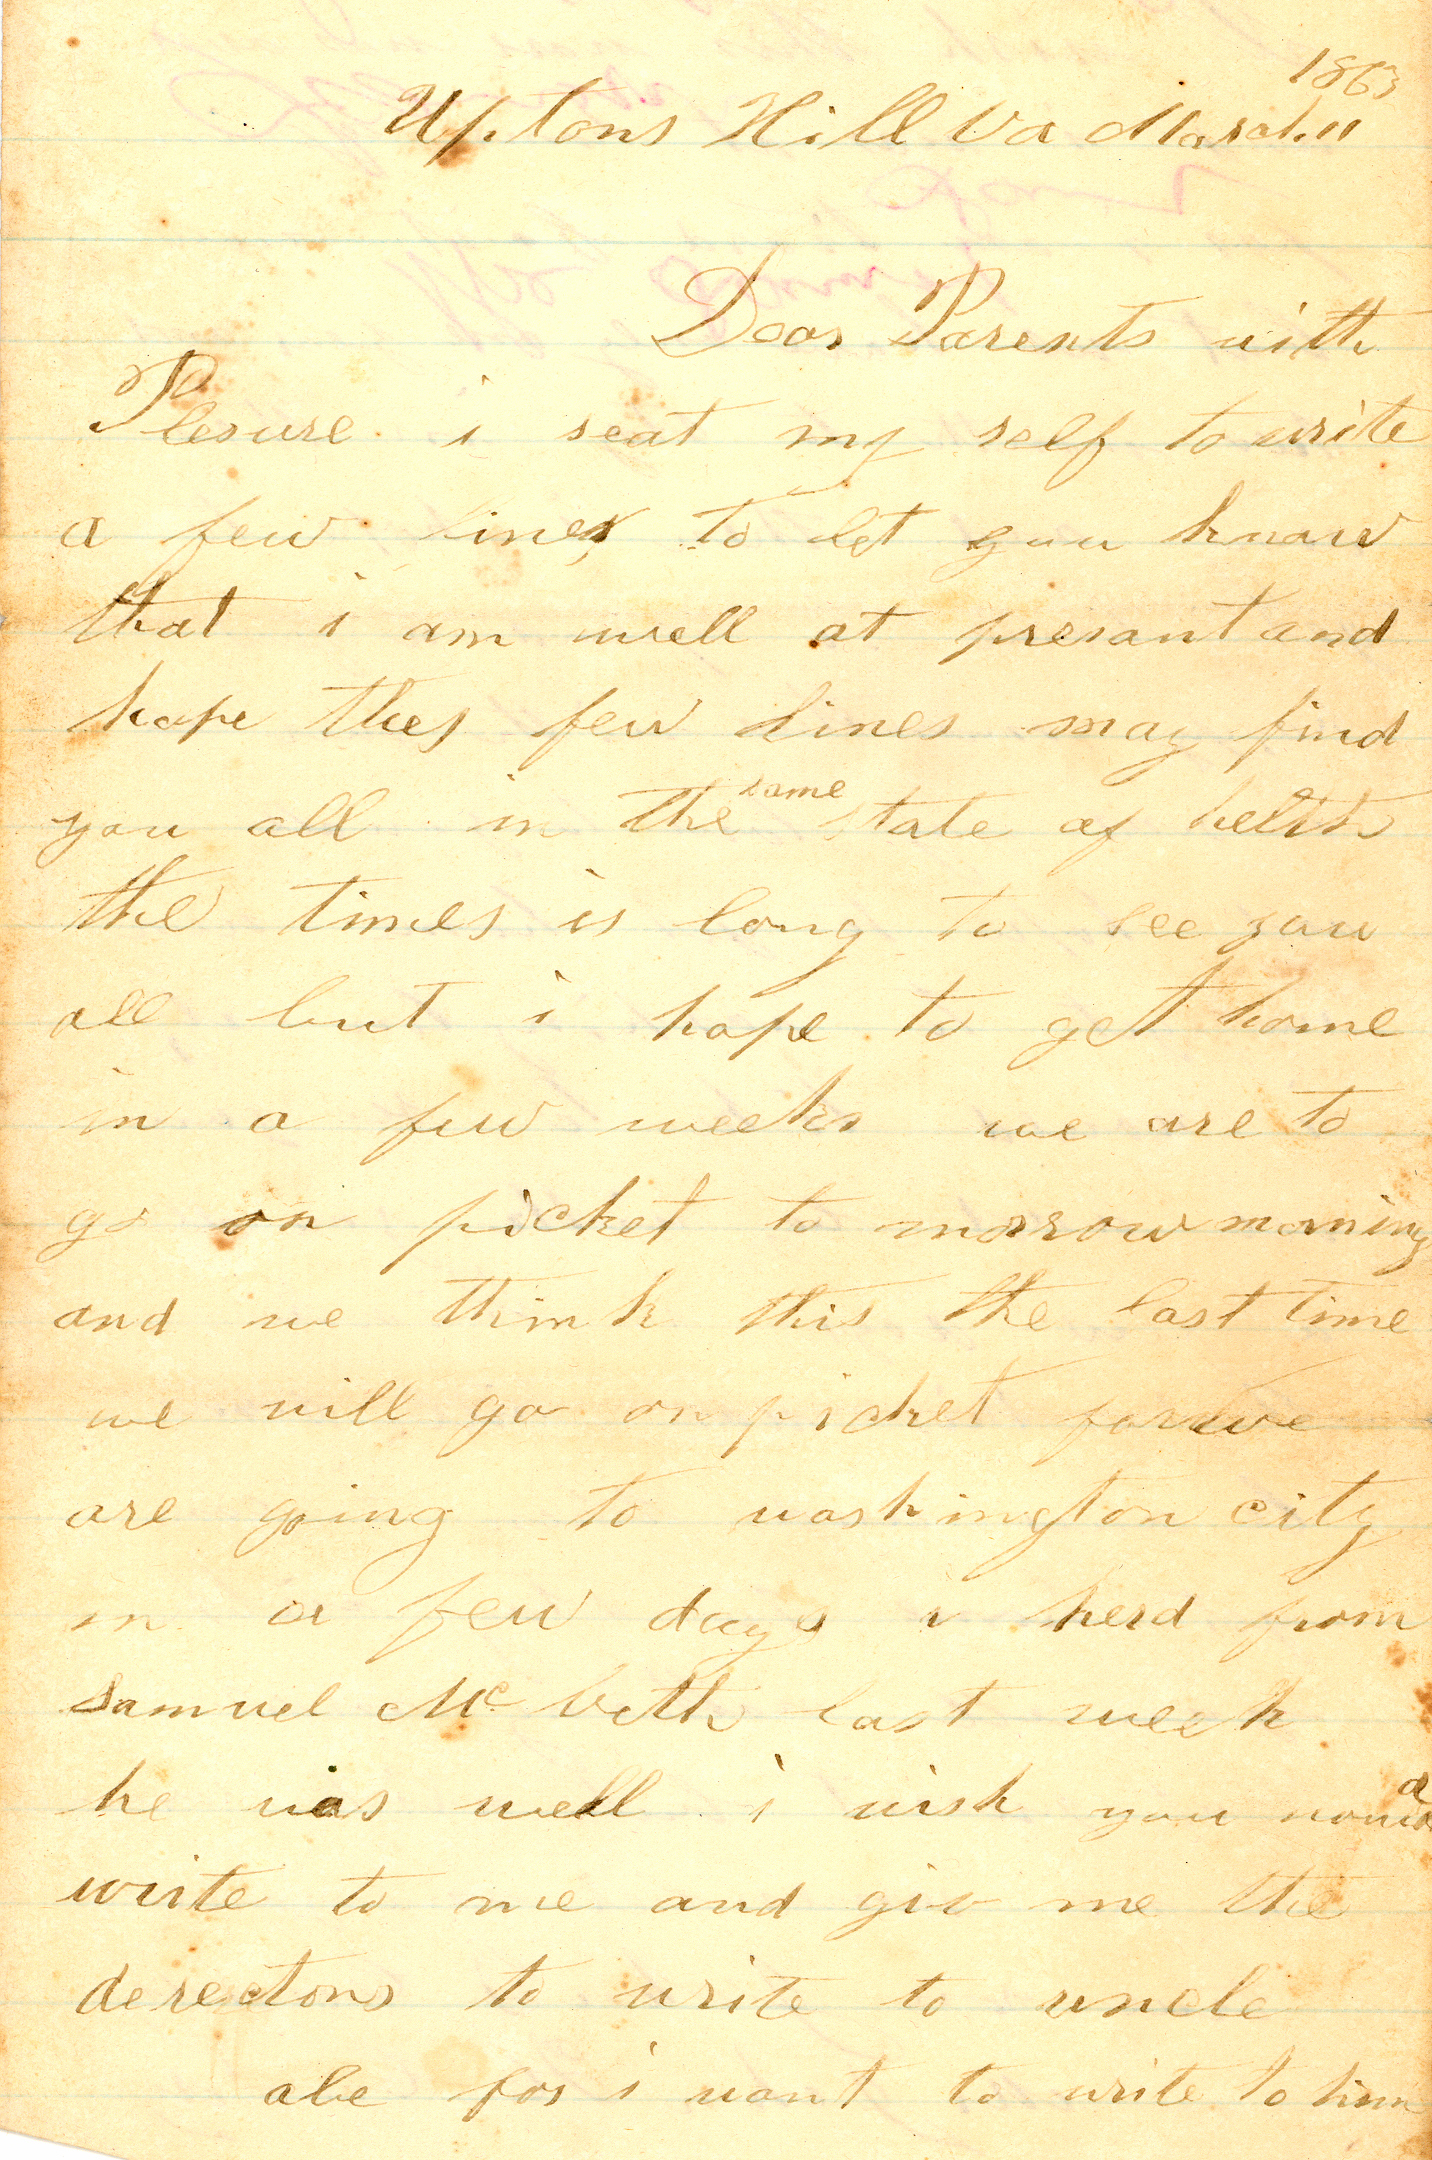 1863
Uptons Hill Va March 11
Dear Parents with
Plesure i seat my self to write
a few lines to let you know
that i am well at presant and
hope thes few lines may find
you all in the same state of helth
the times is long to see you
all but i hope to get home
in a few weeks we are to
go on picket to morrow morning
and we think this the last time
we will go on picket for we
are going to washington city
in a few days i herd from
Samuel Mc beth last week
he was well i wish you
write to me and giv me the
derectons to write to uncle
abe for i want to write to him